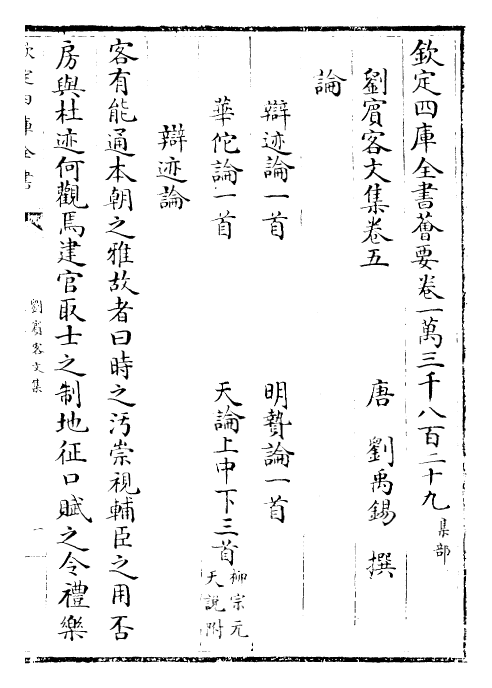 欽定四庫全書薈要卷一萬三千八百二十九 集部
劉賓客文集卷五 唐 劉禹錫 撰
論
辯迹論一首 明贄論一首
華佗論一首 天論上中下三首 柳宗元天說附
辯迹論
客有能通本朝之雅故者曰時之汚崇視輔臣之用否
房與杜迹何觀焉建官取士之制地征口賦之令禮樂
欽定四庫全書
劉賓客文集
一